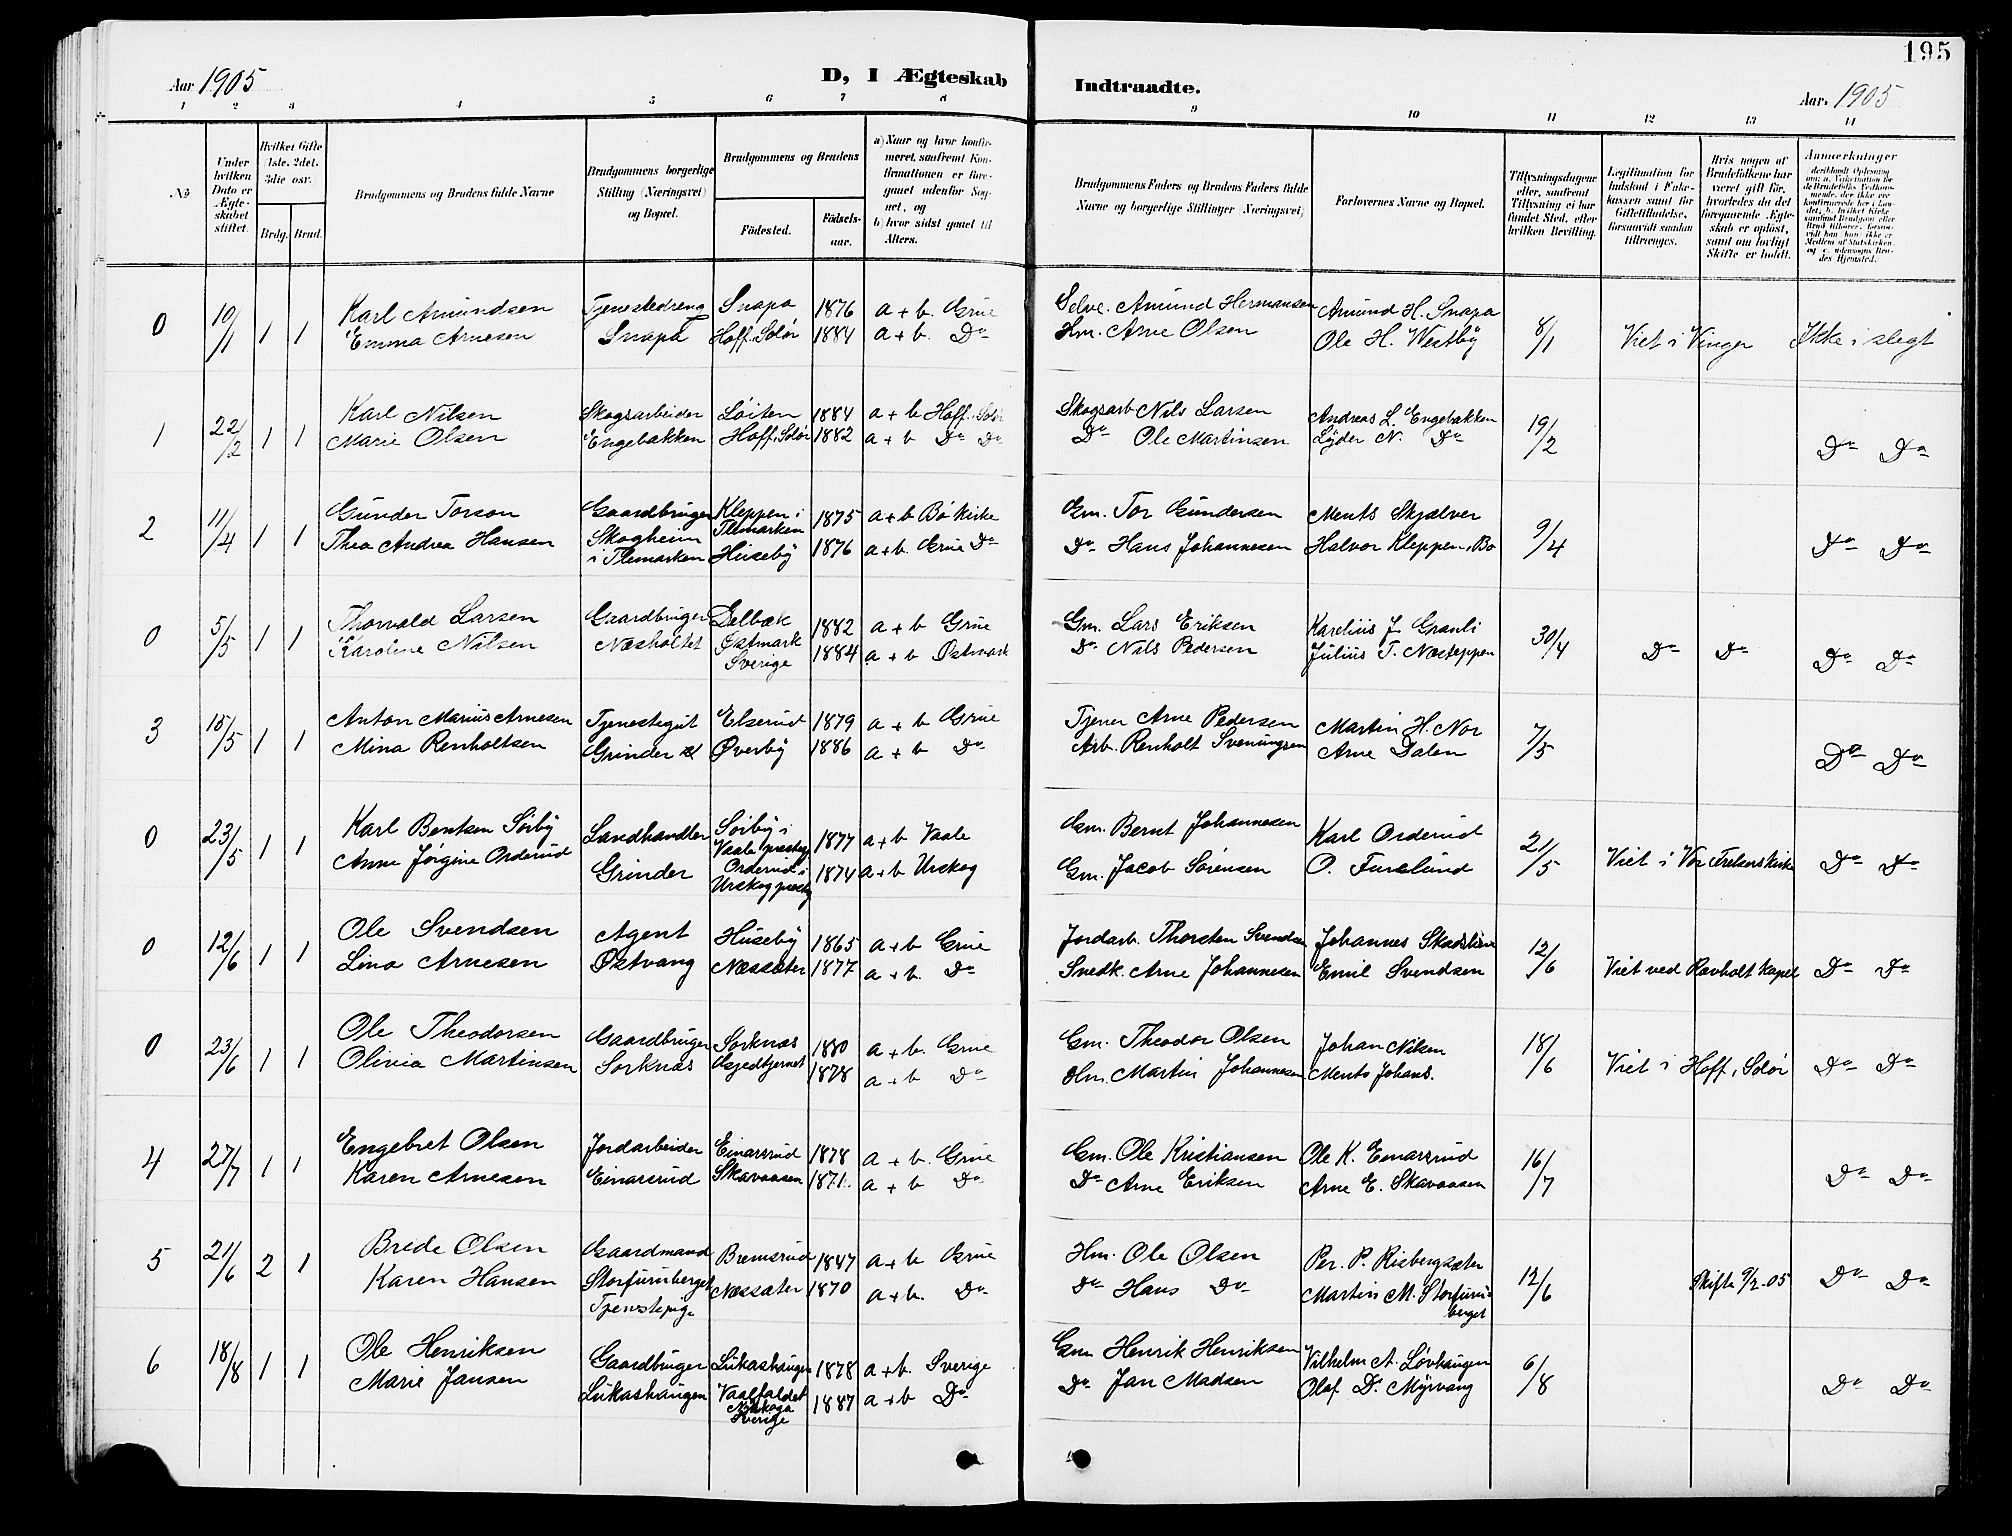 195
Aar 1905
D, I Ægteskab Indtraadte.
Aar. 1905
1 2 3 4 5 6 7 8 9 10 11 12 13 14
No
Under hvilken Dato er Ægteskabet stiftet.
Hvilket Gifte 1ste, 2det, 3die osv.)
Brdg. Brud.
Brudgommens og Brudens fulde Navne
Brudgommens borgerlige Stilling (Næringsvei) og Bopæl.
Brudgommens og Brudens
Födested. Födsels-aar.
a) Naar og hvor konfirmeret, saafremt Konfirmationen er foregaaet udenfor Sognet, og
b) hvor sidst gaaet til Alters.
Brudgommens Faders og Brudens Faders fulde Navne og borgerlige Stillinger (Næringsvei)
Forlovernes Navne og Bopæl.
Tillysningsdagene eller, saafremt Tillysning ei har fundet Sted, efter hvilken Bevilling.
Legitimation for Indskud i Enkekassen samt for Giftetilladelse, forsaavidt saadan tiltrænges.
Hvis nogen af Brudefolkene har været gift før, hvorledes da det foregaaende Ægteskab er opløst, samt om lovligt Skifte er holdt.
Anmærkninger
0 10/1 1 1 Karl Amundsen Tjenestedreng Snapa 1876 a + b. Grue Selve. Amund Hermansen Amund H. Snapa 8/1 Viet i Vinger Ikke i slegt
Emma Arnesen Snapa Hoff. Solør 1884 a + b. Do Hm. Arne Olsen Ole H. Westby
1 22/2 1 1 Karl Nilsen Skogsarbeider Løiten 1884 a + b Hoff. Solør Skogsarb Nils Larsen Andreas L. Engebakken 19/2 Do Do
Marie Olsen Engebakken Hoff. Solør 1882 a + b Do Do Do Ole Martinsen Lyder N. Do
2 11/4 1 1 Gunder Torson Gaardbruger Kleppen i Tlemarken 1875 a + b Bö Kirke Gm. Tor Gundersen Ments Skjælver 9/4 Do Do
Thea Andrea Hansen Skogheim i Tlemarken Huseby 1876 a + b. Grue Do Do Hans Johannesen Halvor Kleppen, Bö
0 5/5 1 1 Thorvald Larsen Gaardbruger Delbæk 1882 a + b Grue Gm. Lars Eriksen Karelius J. Granli 30/4 Do Do Do Do
Karoline Nilsen Næsholtet Östmark Sverige 1884 a + b Østmark Do Nils Pedersen Julius T. Næsteppen
3 15/5 1 1 Anton Marius Arnesen Tjenestegut Elserud 1879 a + b Grue Tjener Arne Pedersen Martin H. Nor 7/5 Do Do
Mina Renholtsen Grinder Øverby 1886 a + b Do Arb. Renholt Svenungsen Arne Dalen
0 23/5 1 1 Karl Bentsen Sörby Landhandler Sörby i Vaale prestg 1877 a + b Vaale Gm. Bernt Johannesen Karl Orderud 21/5 Viet i Vor Frelsers kirke Do Do
Anne Jørgine Orderud Grinder Orderud i Urskog prestg 1874 a + b Urskog Gm. Jacob Sørensen O. Furulund
0 12/6 1 1 Ole Svendsen Agent Huseby 1865 a + b Grue Jordarb. Thorsten Svendsen Johannes 12/6 Viet ved Rovholt Kapel Do Do
Lina Arnesen Østvang Næssæter 1877 a + b. Do Snedk. Arne Johannesen Emil Svendsen
0 23/6 1 1 Ole Theodorsen Gaardbruger Sorknæs 1880 a + b. Grue Gm. Theodor Olsen Johan Nilsen 18/6 Viet i Hoff, Solør Do Do
Olivia Martinsen Sorknæs Gjedtjernet 1878 a + b Do Hm. Martin Johannesen Ments Johans.
4 27/7 1 1 Engebret Olsen Jordarbeider Einarsrud 1878 a + b. Grue Gm. Ole Kristiansen Ole K. Einarsrud 16/7 Do Do
Karen Arnesen Einarsrud Skavaasen 1871. a + b Do Do Arne Eriksen Arne E. Skavaasen
5 21/6 2 1 Brede Olsen Gaardmand Bremsrud 1847 a + b Grue Hm. Ole Olsen Per. P. Risbergsæter 12/6 Skifte 9/2-05 Do Do
Karen Hansen Storfuruberget Tjenstepige Næssæter 1870 a + b. Do Do Hans Do Martin M. Storfuruberget
6 18/8 1 1 Ole Henriksen Gaardbruger Lukashaugen 1878 a + b. Sverige Gm Henrik Henriksen Vilhelm A. Løvhaugen 6/8 Do Do
Marie Jansen Lukashaugen Vaalfaldet Nyskoga Sverige 1887 a + b Do Do Jan Madsen Olaf D. Myrvang